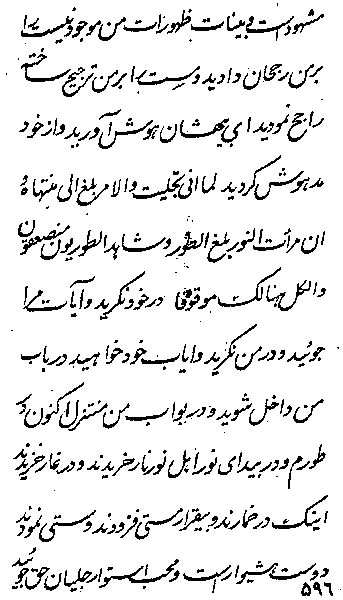 مشهود است و بینات ظهورات من موجود نیست را
بر من رجحان دادید و ست را بر من ترجیح ساخته
راجح نمودید ای بیهشان بهوش آورید و از خود
مدهوش گردید لما انی تجلیت والامر بلغ الی منتهاه
ان مرأت النور بلغ الطور و شاهد الطوریون منصعقون
والکل هنالک موقوفا در خود نگرید و آیات مرا
جوئید و در من نگرید و ایاب خود خواهید در باب
من داخل شوید و در بواب من مستنزل اکنون در
طورم و در بیدای نور اهل نور نار خریدند و در غار خزیدند
اینک در خمارند و بیقرار مستی فزودند و سستی نمودند
دوست هشیوار است و محب استوار جلیان حق جوئید
۵۹۶